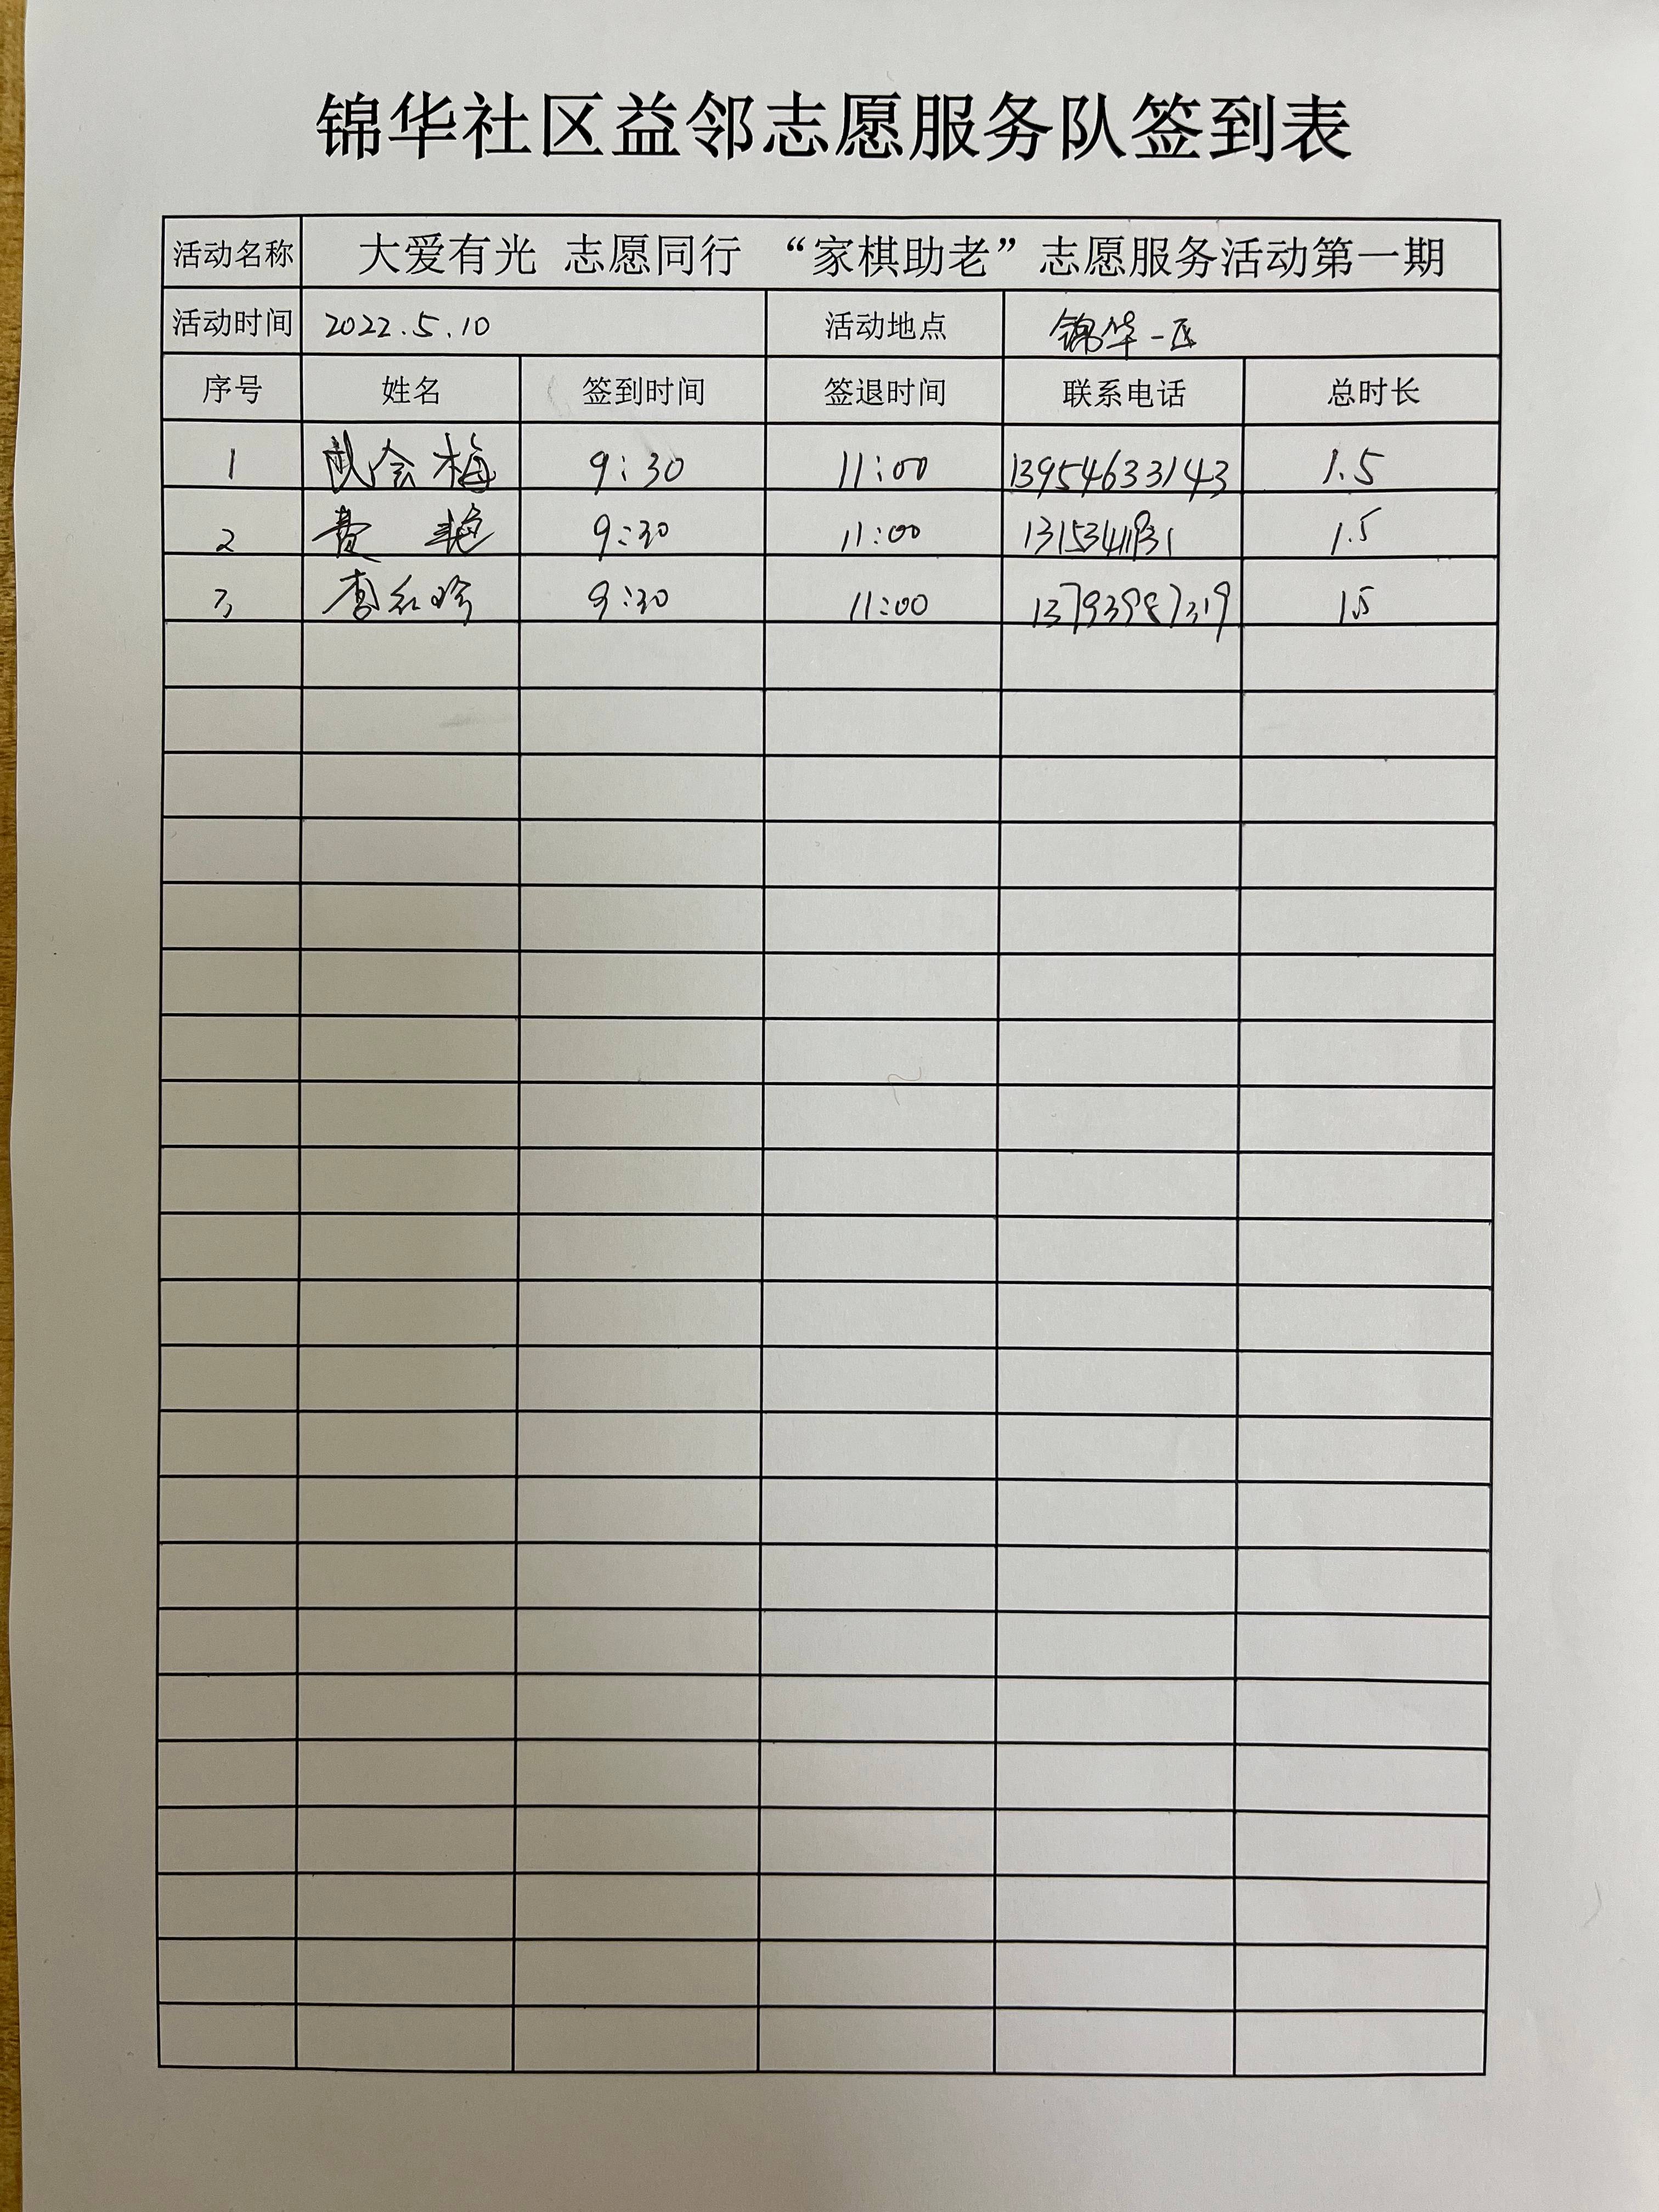 锦华社区益邻志愿服务队签到表
活动名称 大爱有光 志愿同行 “家棋助老”志愿服务活动第一期
活动时间 2022.5.10 活动地点 锦华一区
序号 姓名 签到时间 签退时间 联系电话 总时长
1 会梅 9:30 11:00 13954633143 1.5
2 费艳 9:30 11:00 1.5
3 李红珍 9:30 11:00 13793987319 1.5